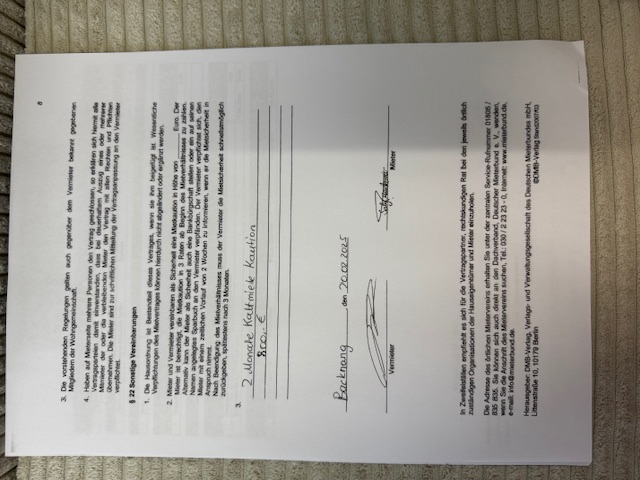 8
3. Die vorstehenden Regelungen gelten auch gegenüber dem Vermieter bekannt gegebenen
Mitgliedern der Wohngemeinschaft.
4. Haben auf Mieterseite mehrere Personen den Vertrag geschlossen, so erklären sich hiermit alle
Vertragsparteien damit einverstanden, dass bei dauerhaftem Auszug eines oder mehrerer
Mitmieter der oder die verbleibenden Mieter den Vertrag mit allen Rechten und Pflichten
übernehmen. Die Mieter sind zur schriftlichen Mitteilung der Vertragsanpassung an den Vermieter
verpflichtet.
§ 22 Sonstige Vereinbarungen
1. Die Hausordnung ist Bestandteil dieses Vertrages, wenn sie ihm beigefügt ist. Wesentliche
Verpflichtungen des Mietvertrages können hierdurch nicht abgeändert oder ergänzt werden.
2. Mieter und Vermieter vereinbaren als Sicherheit eine Mietkaution in Höhe von ______ Euro. Der
Mieter ist berechtigt, die Mietkaution in 3 Raten ab Beginn des Mietverhältnisses zu zahlen.
Alternativ kann der Mieter als Sicherheit auch eine Bankbürgschaft stellen oder ein auf seinen
Namen angelegtes Sparbuch an den Vermieter verpfänden. Der Vermieter verpflichtet sich, den
Mieter mit einem zeitlichen Vorlauf von 2 Wochen zu informieren, wenn er die Mietsicherheit in
Anspruch nimmt.
Nach Beendigung des Mietverhältnisses muss der Vermieter die Mietsicherheit schnellstmöglich
zurückgeben, spätestens nach 3 Monaten.
3.
2 Monate Kaltmiete Kaution
800,- €
Backnang, den 20.02.2025
Vermieter Mieter
In Zweifelsfällen empfiehlt es sich für die Vertragspartner, rechtskundigen Rat bei den jeweils örtlich
zuständigen Organisationen der Hauseigentümer und Mieter einzuholen.
Die Adresse des örtlichen Mietervereins erhalten Sie unter der zentralen Service-Rufnummer 01805 /
835 835. Sie können sich auch direkt an den Dachverband, Deutscher Mieterbund e. V., wenden,
wenn Sie die Anschrift des Mietervereins suchen, Tel.: 030 / 2 23 23 - 0, Internet: www.mieterbund.de,
e-mail: info@mieterbund.de.
Herausgeber: DMB-Verlag, Verlags- und Verwaltungsgesellschaft des Deutschen Mieterbundes mbH,
Littenstraße 10, 10179 Berlin ©DMB-Verlag Stand2007/03